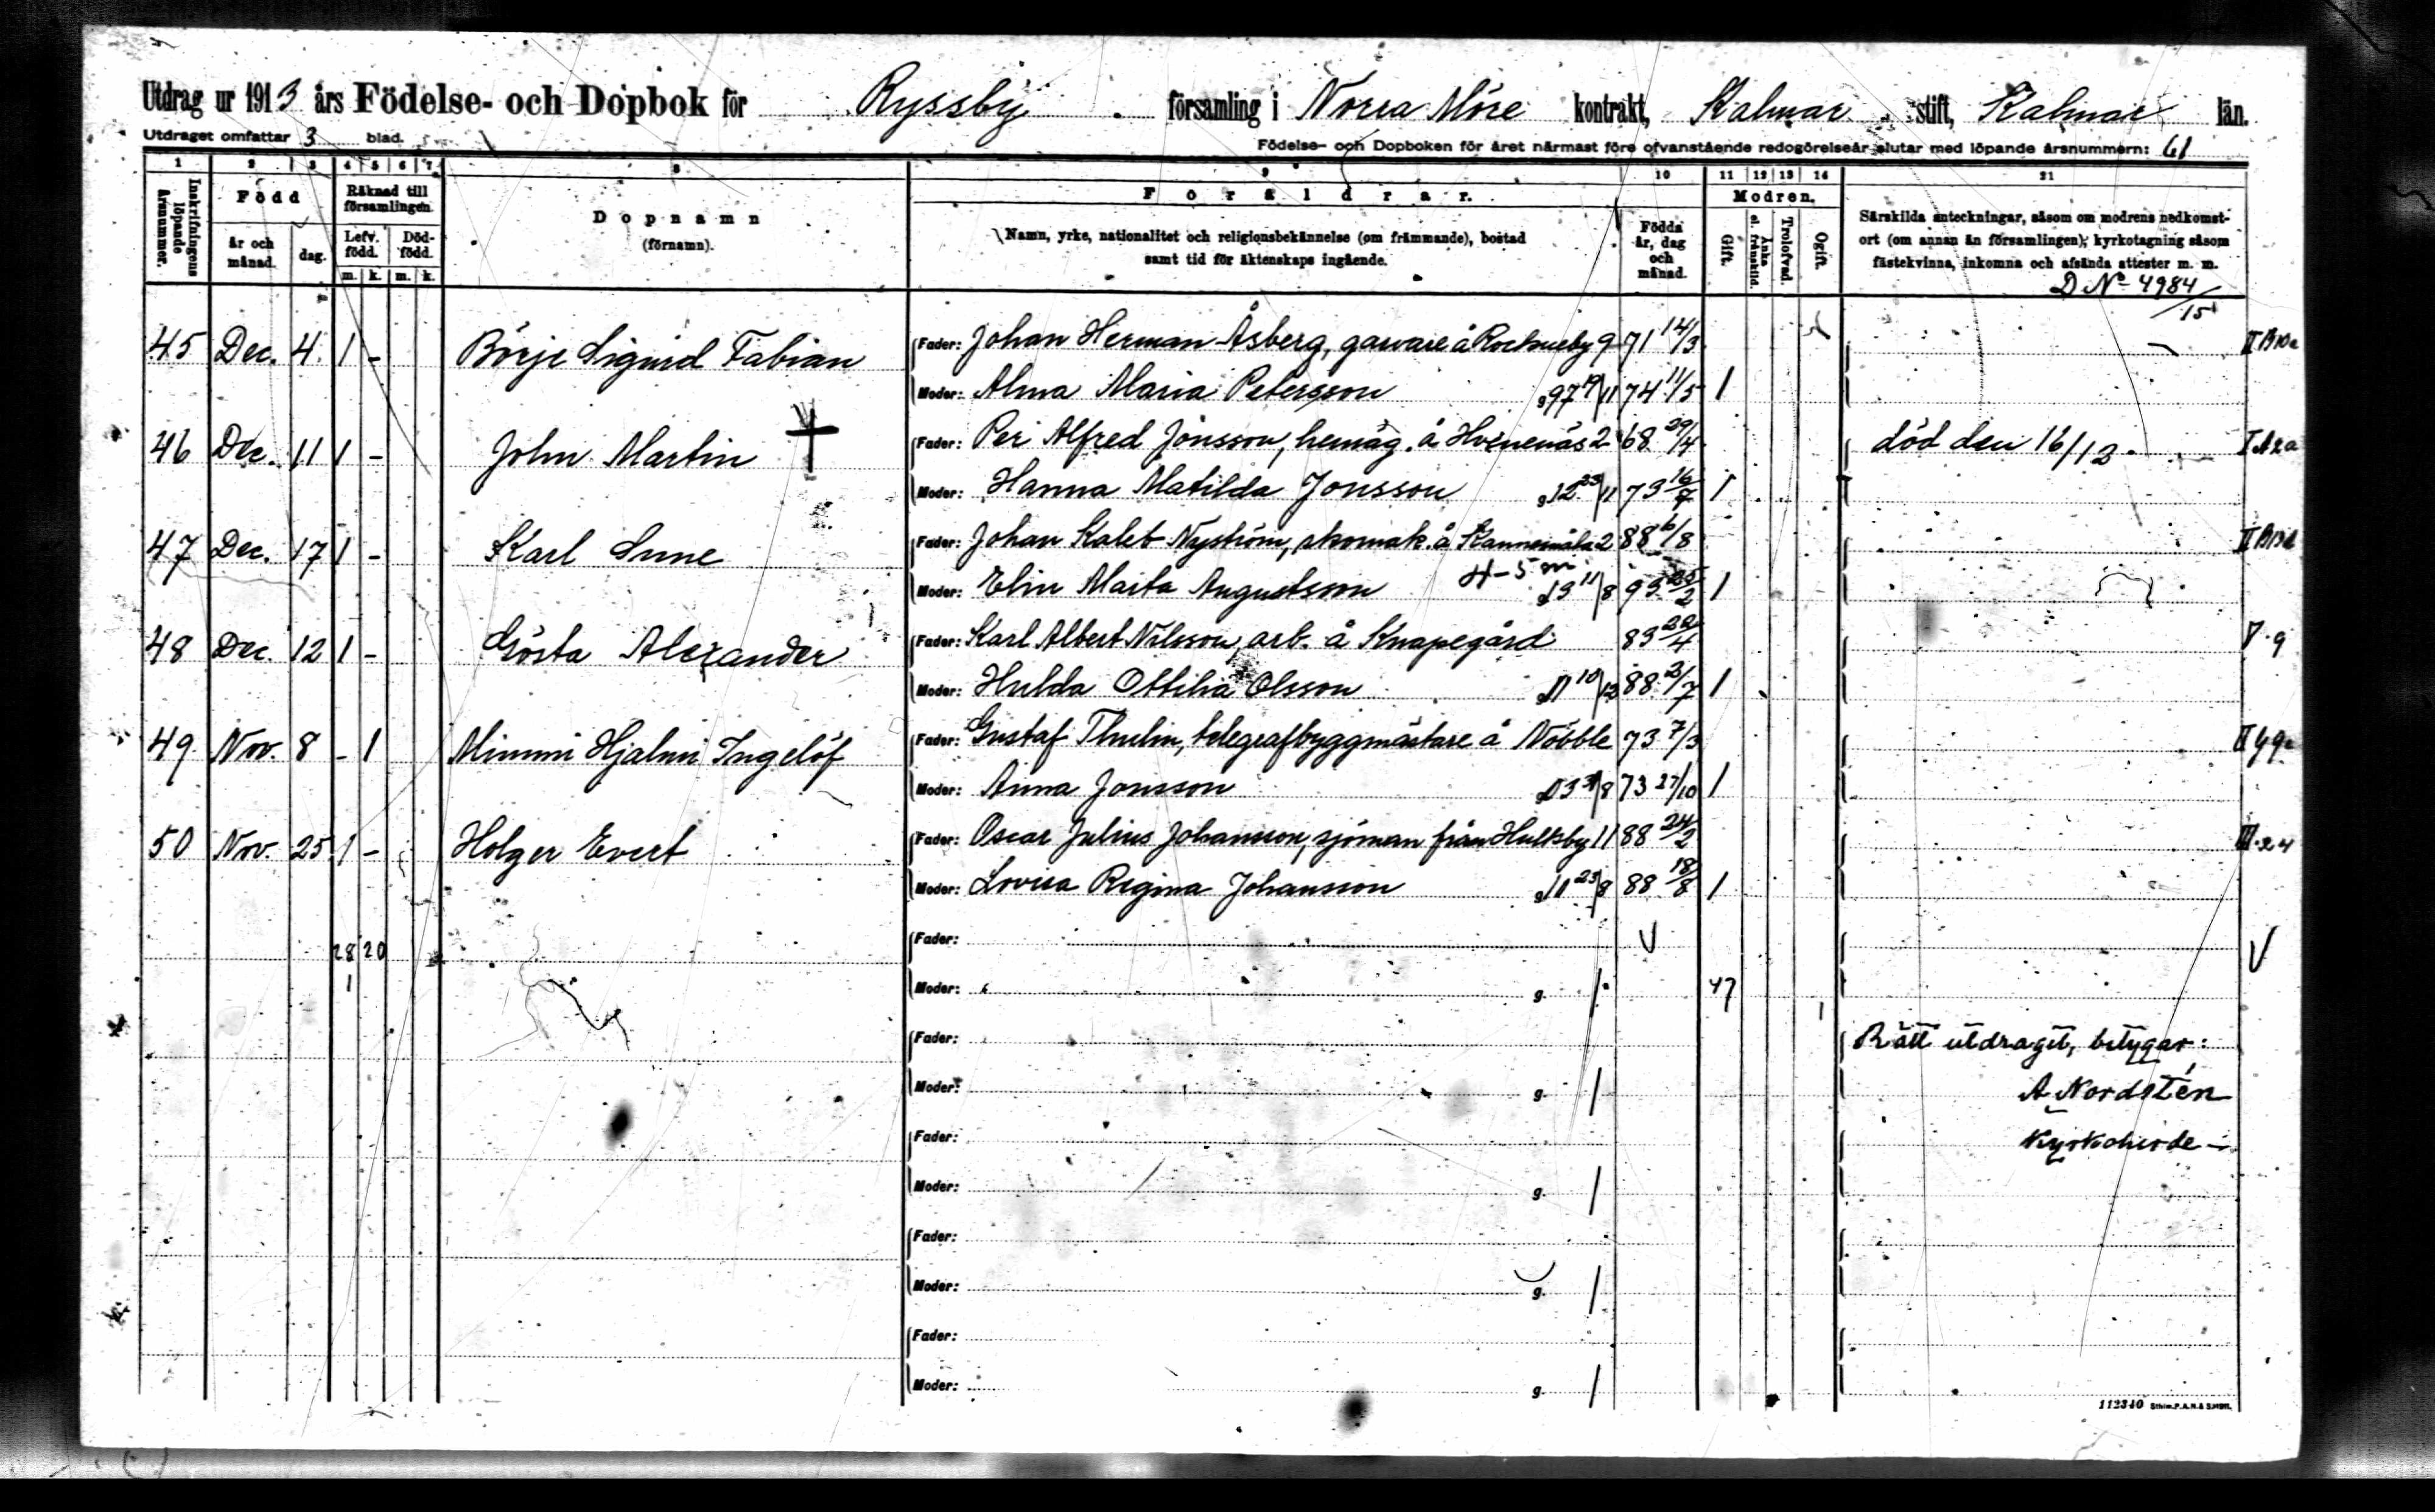 Utdrag ur 1913 års Födelse- och Dopbok för Ryssby församling i Norra Möre kontrakt, Kalmar stift, Kalmar län.
Utdraget omfattar 3 blad.
Födelse- och Dopboken för året närmast före ofvanstående redogörelseår slutar med löpande årsnummern: 61
1 2 3 4 5 6 7 8 9 10 11 12 13 14 21
Inskrifningens löpande årsnummer.
Född
år och månad. dag.
Räknad till församlingen.
Lefv. född. Död-född.
m. k. m. k.
Dopnamn
(förnamn).
Föräldrar.
Namn, yrke, nationalitet och religionsbekännelse (om främmande), bostad
samt tid för äktenskaps ingående.
Födda år, dag och månad.
Modren.
Gift. Änka el. frånskild. Trolofvad. Ogift.
Särskilda anteckningar, såsom om modrens nedkomst-
ort (om annan än församlingen), kyrkotagning såsom
fästekvinna, inkomna och afsända attester m. m.
D No 4984/15
45 Dec. 4. 1 - Börje Sigurd Fabian Fader: Johan Herman Åsberg, garvare å Rockneby 9 71 14/3 II B10a
Moder: Alma Maria Petersson g. 97 19/11 74 11/5 1
46 Dec. 11 1 - John Martin † Fader: Per Alfred Jonsson, hemäg. å Hvenenäs 2 68 29/4 död den 16/12. I A2a
Moder: Hanna Matilda Jonsson g. 12 23/11 73 16/7 1
47 Dec. 17 1 - Karl Sune Fader: Johan Kaleb Nyström, skomak. å Kannemåla 2 88 6/8
4-5 m
Moder: Elin Maria Augustsson g. 13 11/8 93 25/2 1
48 Dec. 12 1 - Gösta Alexander Fader: Karl Albert Nilsson, arb. å Knapegård 83 22/4
Moder: Hulda Ottilia Olsson g. 11 10/12 88 2/7 1
49 Nov. 8 - 1 Mimmi Hjalmi Ingelöf Fader: Gustaf Thulin, telegrafbyggmästare å Nöbble 73 7/3
Moder: Anna Jonsson g. 03 /8 73 27/10 1
50 Nov. 25 1 - Holger Evert Fader: Oscar Julius Johansson, sjöman från Hultsby 11 88 24/2 III 24
Moder: Lovisa Regina Johansson g. 11 23/8 88 18/8 1
28 20 Fader:
1 Moder: g. / 47 1
Fader: Rätt utdraget, betygar:
Moder: g. / A Nordstén
Fader: Kyrkoherde
Moder: g. /
Fader:
Moder: g. /
Fader:
Moder: g. /
112340 Sthlm, P. A. N. & S. 1911.